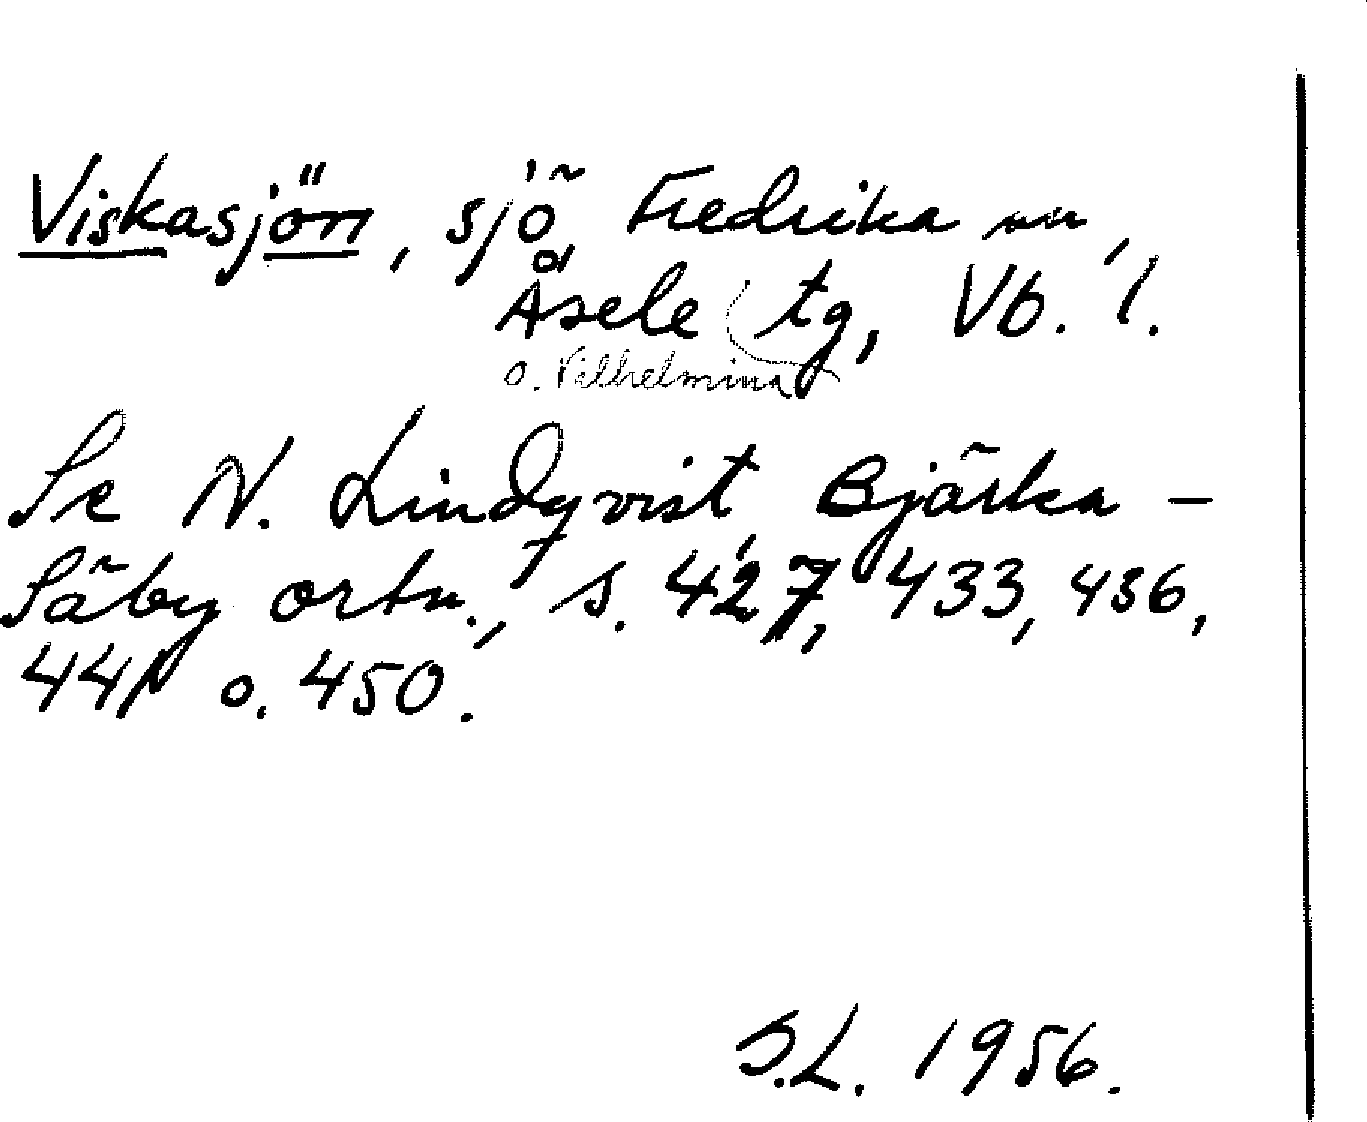 Viskasjön, sjö, Fredrika sn,
Åsele tg, Vb. l.
o. Vilhelmina
Se N. Lindqvist, Bjärka-
Säby ortn., s. 427, 433, 436,
441 o. 450.
S.L. 1956.